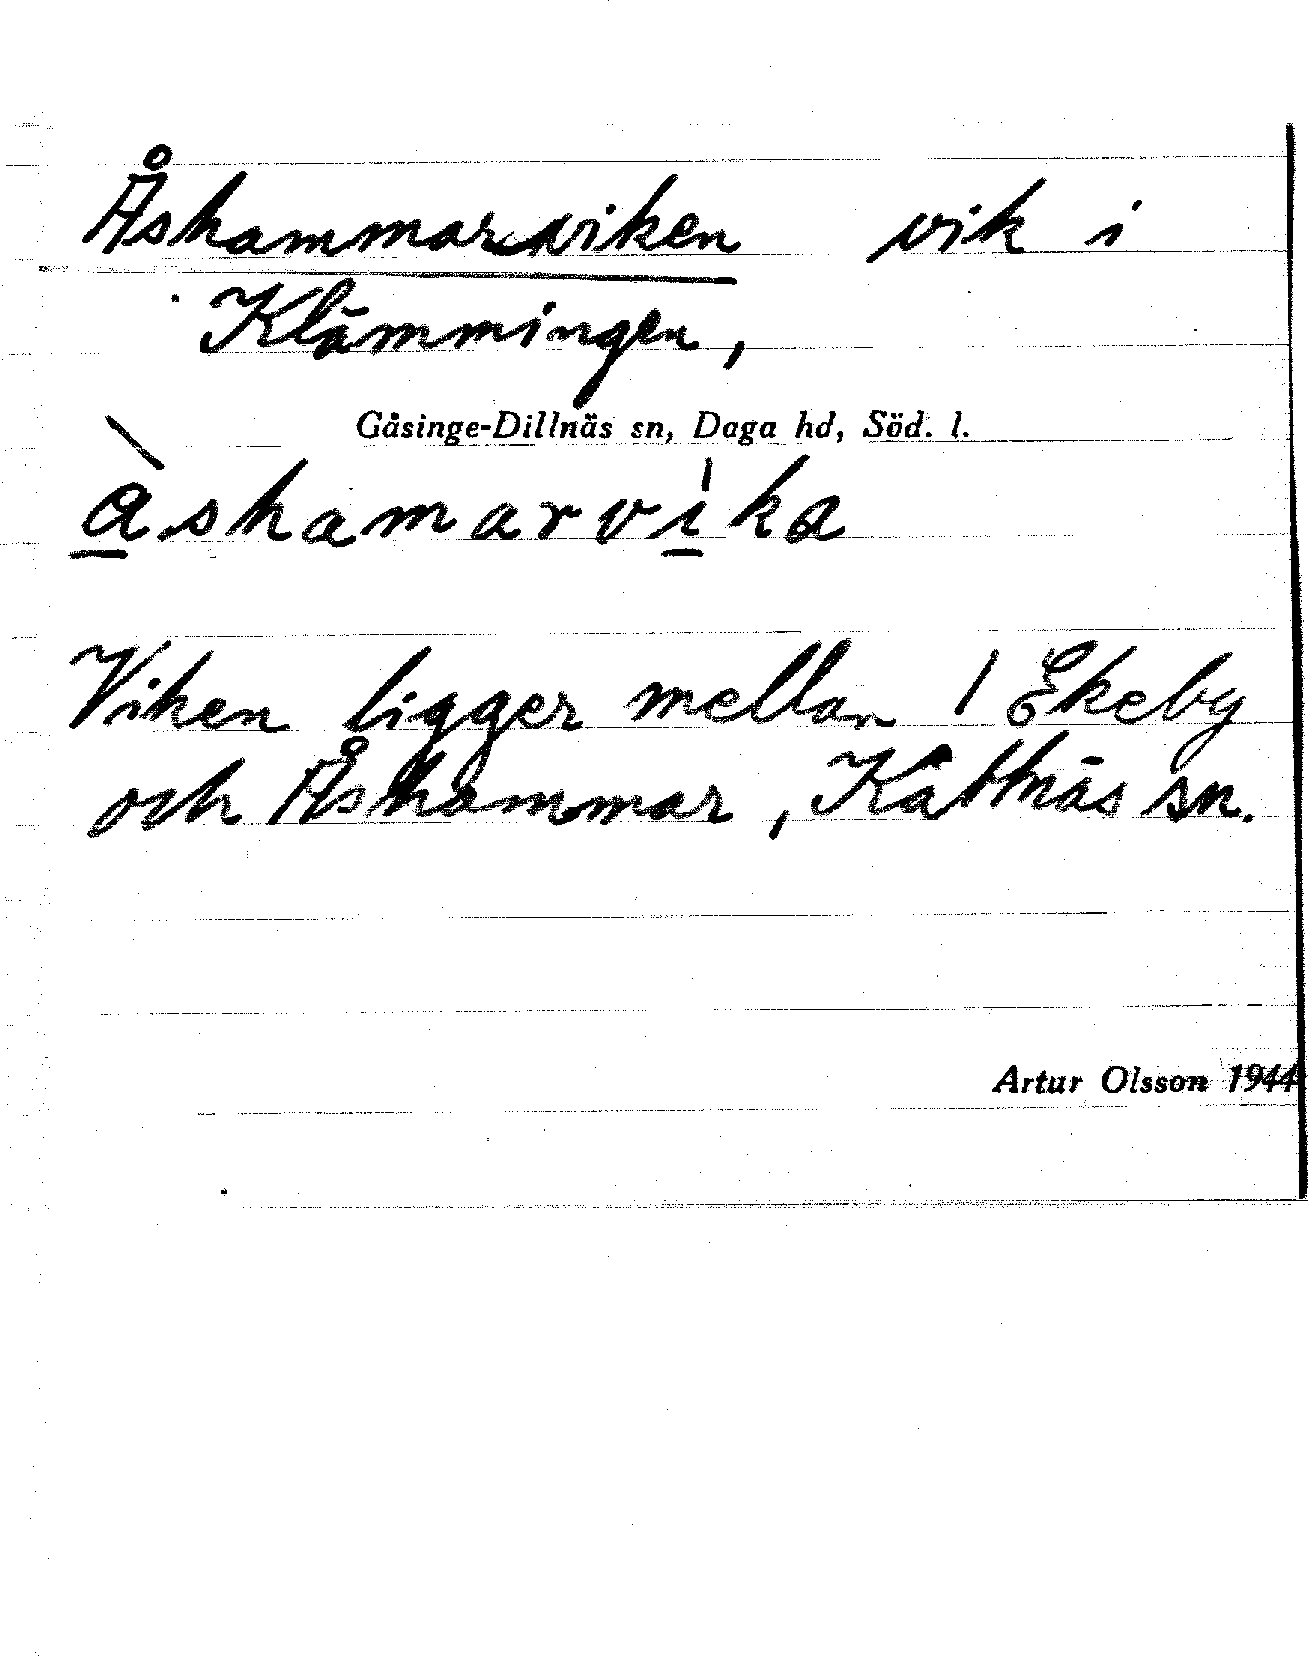 Åshammarviken vik i
Klämmingen,
Gåsinge-Dillnäs sn, Daga hd, Söd. l.
àshamarvika
Viken ligger mellan 1 Ekeby
och Åshammar, Kattnäs sn.
Artur Olsson 1944